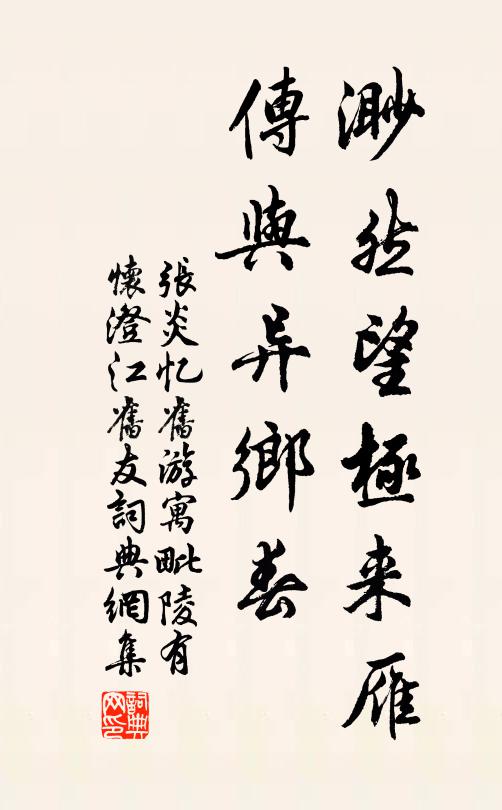 渺然望極来雁
傳與异鄉春
張炎忆舊游寓毗陵有
懷澄江舊友詞典網集
詞典网印